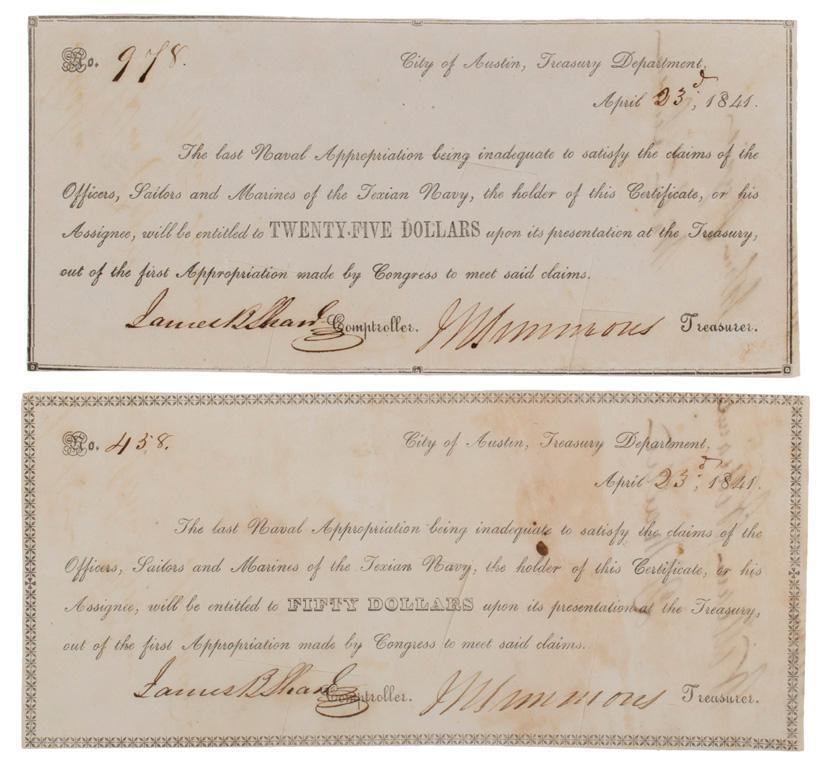 No. 978.
City of Austin, Treasury Department,
April 23d, 1841.
The last Naval Appropriation being inadequate to satisfy the claims of the
Officers, Sailors and Marines of the Texian Navy, the holder of this Certificate, or his
Assignee, will be entitled to TWENTY-FIVE DOLLARS upon its presentation at the Treasury,
out of the first Appropriation made by Congress to meet said claims.
James B Shaw Comptroller. Simmons Treasurer.
No. 458.
City of Austin, Treasury Department,
April 23d, 1841.
The last Naval Appropriation being inadequate to satisfy the claims of the
Officers, Sailors and Marines of the Texian Navy, the holder of this Certificate, or his
Assignee, will be entitled to FIFTY DOLLARS upon its presentation at the Treasury,
out of the first Appropriation made by Congress to meet said claims.
James B Shaw Comptroller. Simmons Treasurer.